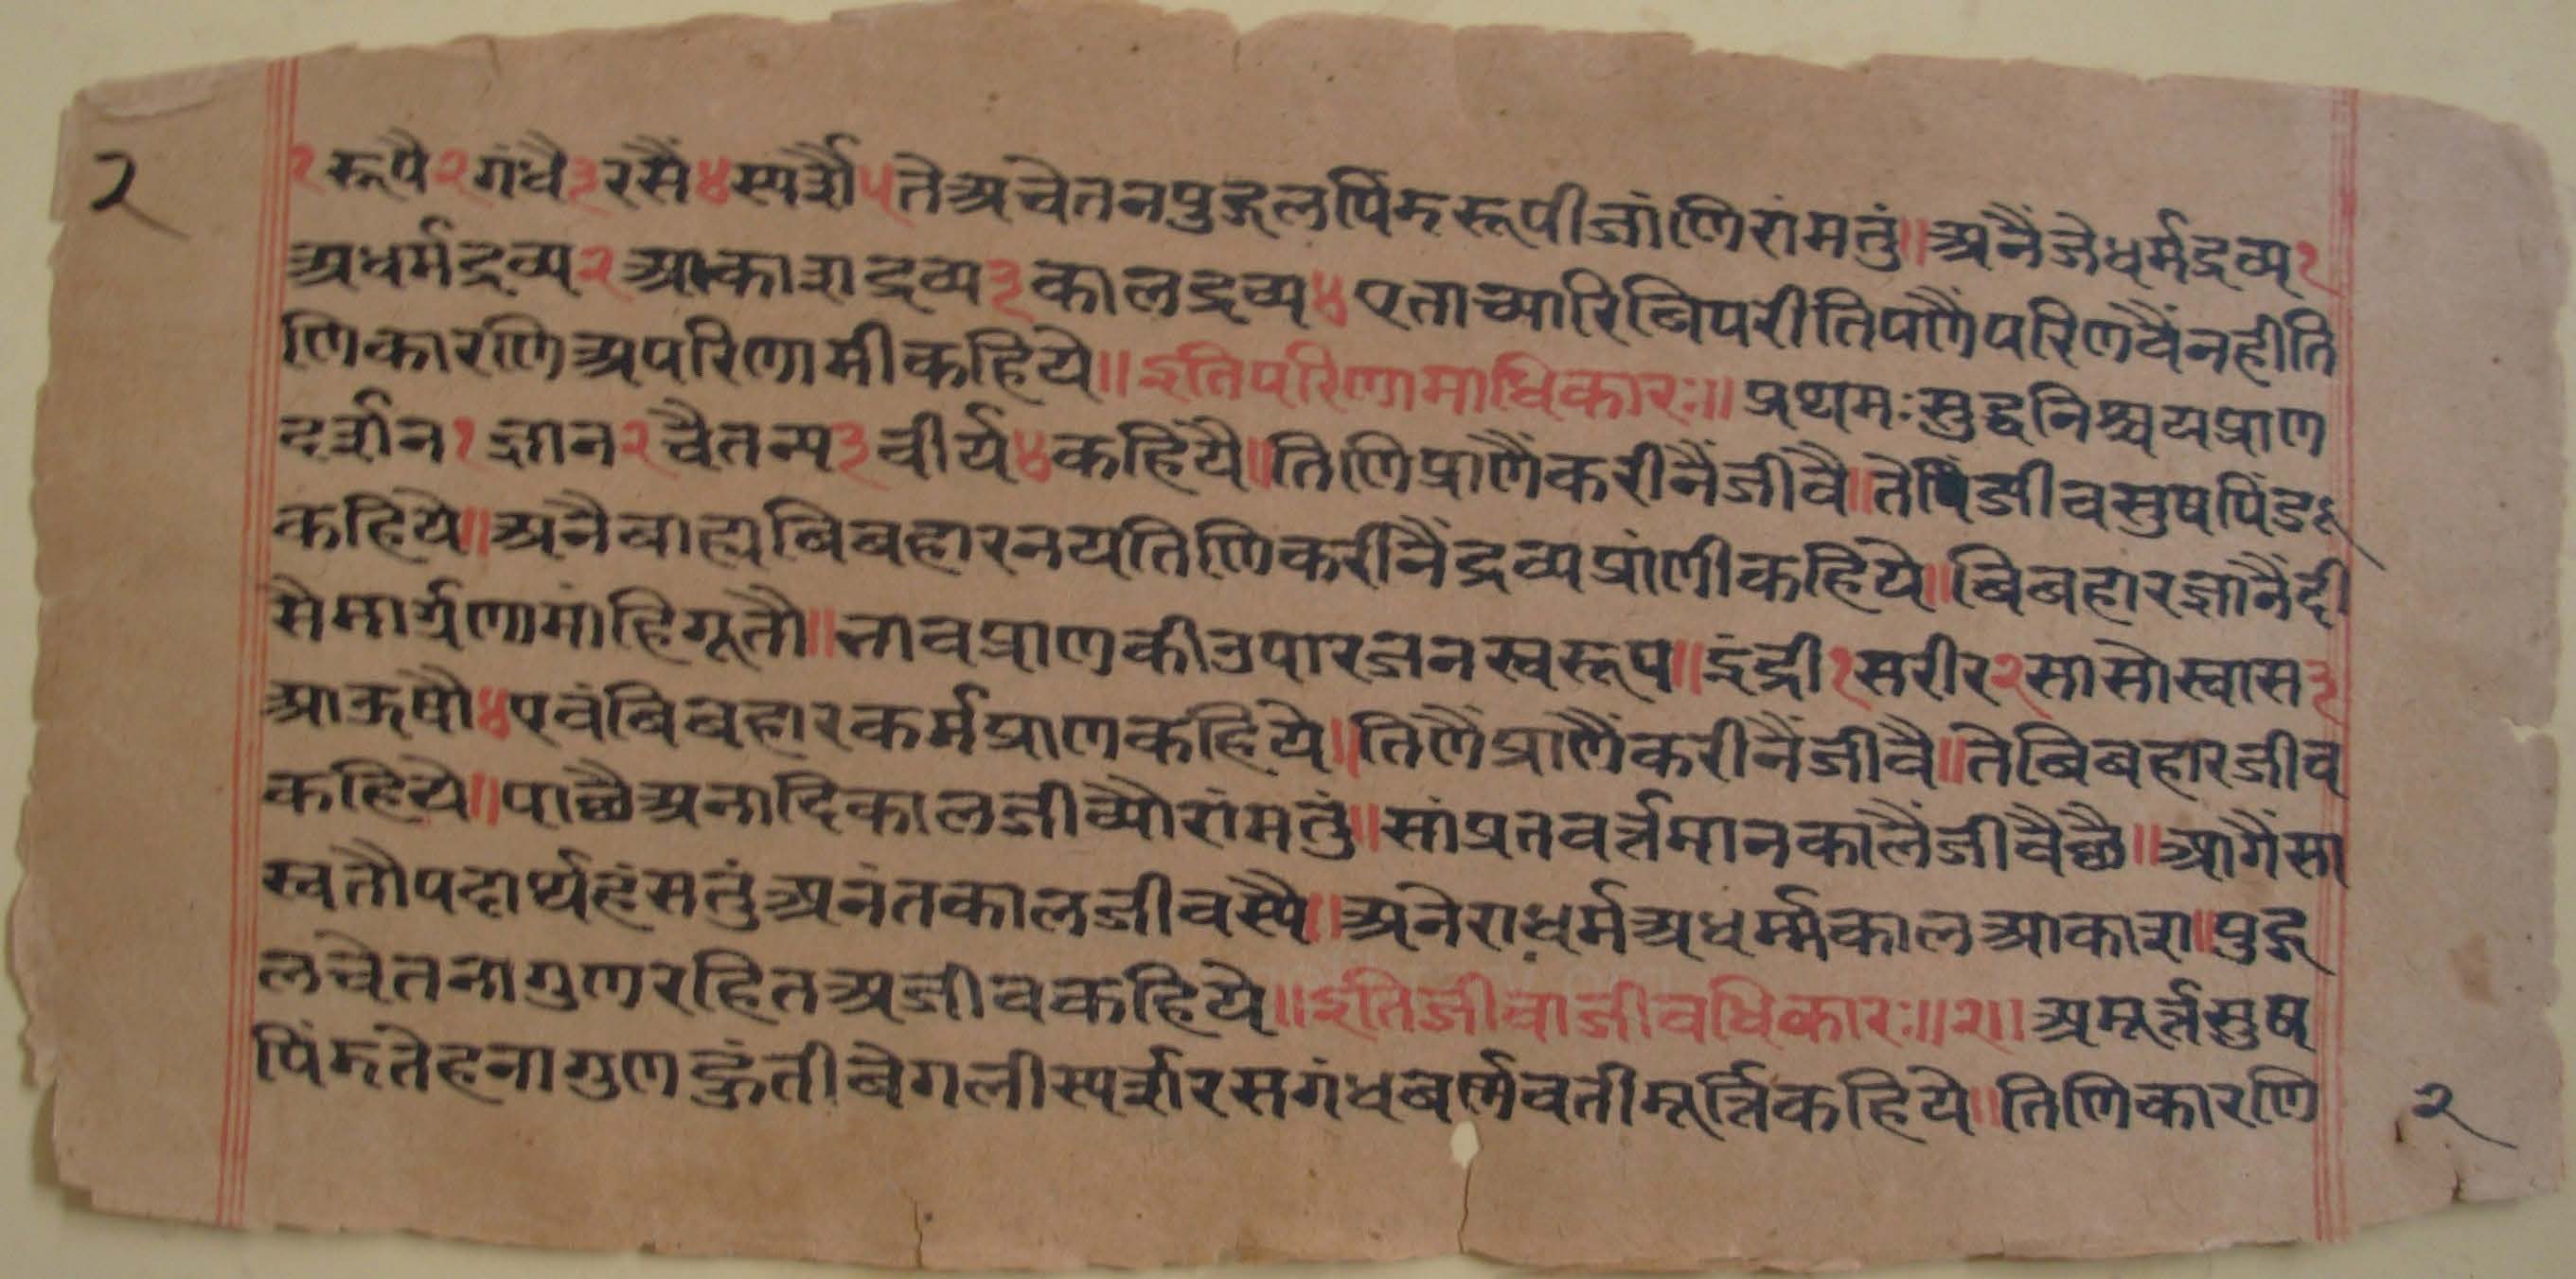 २
१ रूपै २ गंधै ३ रसैं ४ स्पर्शै ५ ते अचेतन पुद्गल पिंड रूपी जांणि रांमतुं ॥ अनैं जे धर्मद्रव्य १
अधर्मद्रव्य २ आकाशद्रव्य ३ कालद्रव्य ४ ए ताच्यारि बिपरीति पणैं परिणवैं नही ति
णि कारणि अपरिणामी कहिये ॥ इति परिणामाधिकारः ॥ प्रथमः सुद्ध निश्चय प्राण
दर्शन १ ज्ञान २ चैतन्य ३ वीर्य ४ कहियै ॥ तिणि प्राणैं करीनैं जीवै ॥ ते जीव सुष पिंड
कहिये ॥ अनै बाह्य बिबहार नय तिणि करीनैं द्रव्य प्रांणी कहिये ॥ बिबहार ज्ञानैंद्री
सै मार्गणा मांहि गूतौ ॥ भाव प्राण की उपारजन स्वरूप ॥ इंद्री १ सरीर २ सासोस्वास ३
आऊषौ ४ एवं बिबहार कर्म प्राण कहिये ॥ तिणैं प्राणैं करीनैं जीवै ॥ ते बिबहार जीव
कहिये ॥ पाछै अनादि काल जीव्यौ रांमतुं ॥ सांप्रत वर्त्तमान कालैं जीवै छै ॥ आगैं सा
स्वतौ पदार्थ हंसतुं अनंतकाल जीवस्यै ॥ अनेरा धर्म अधर्म्म काल आकाश ॥ पुद्ग
ल चेतना गुण रहित अजीव कहिये ॥ इति जीवाजीवधिकारः ॥ २ ॥ अमूर्त्त सुष
पिंड तेहना गुण हुंती बेगली स्पर्श रस गंध बर्णवती मूर्त्ति कहिये ॥ तिणि कारणि
२